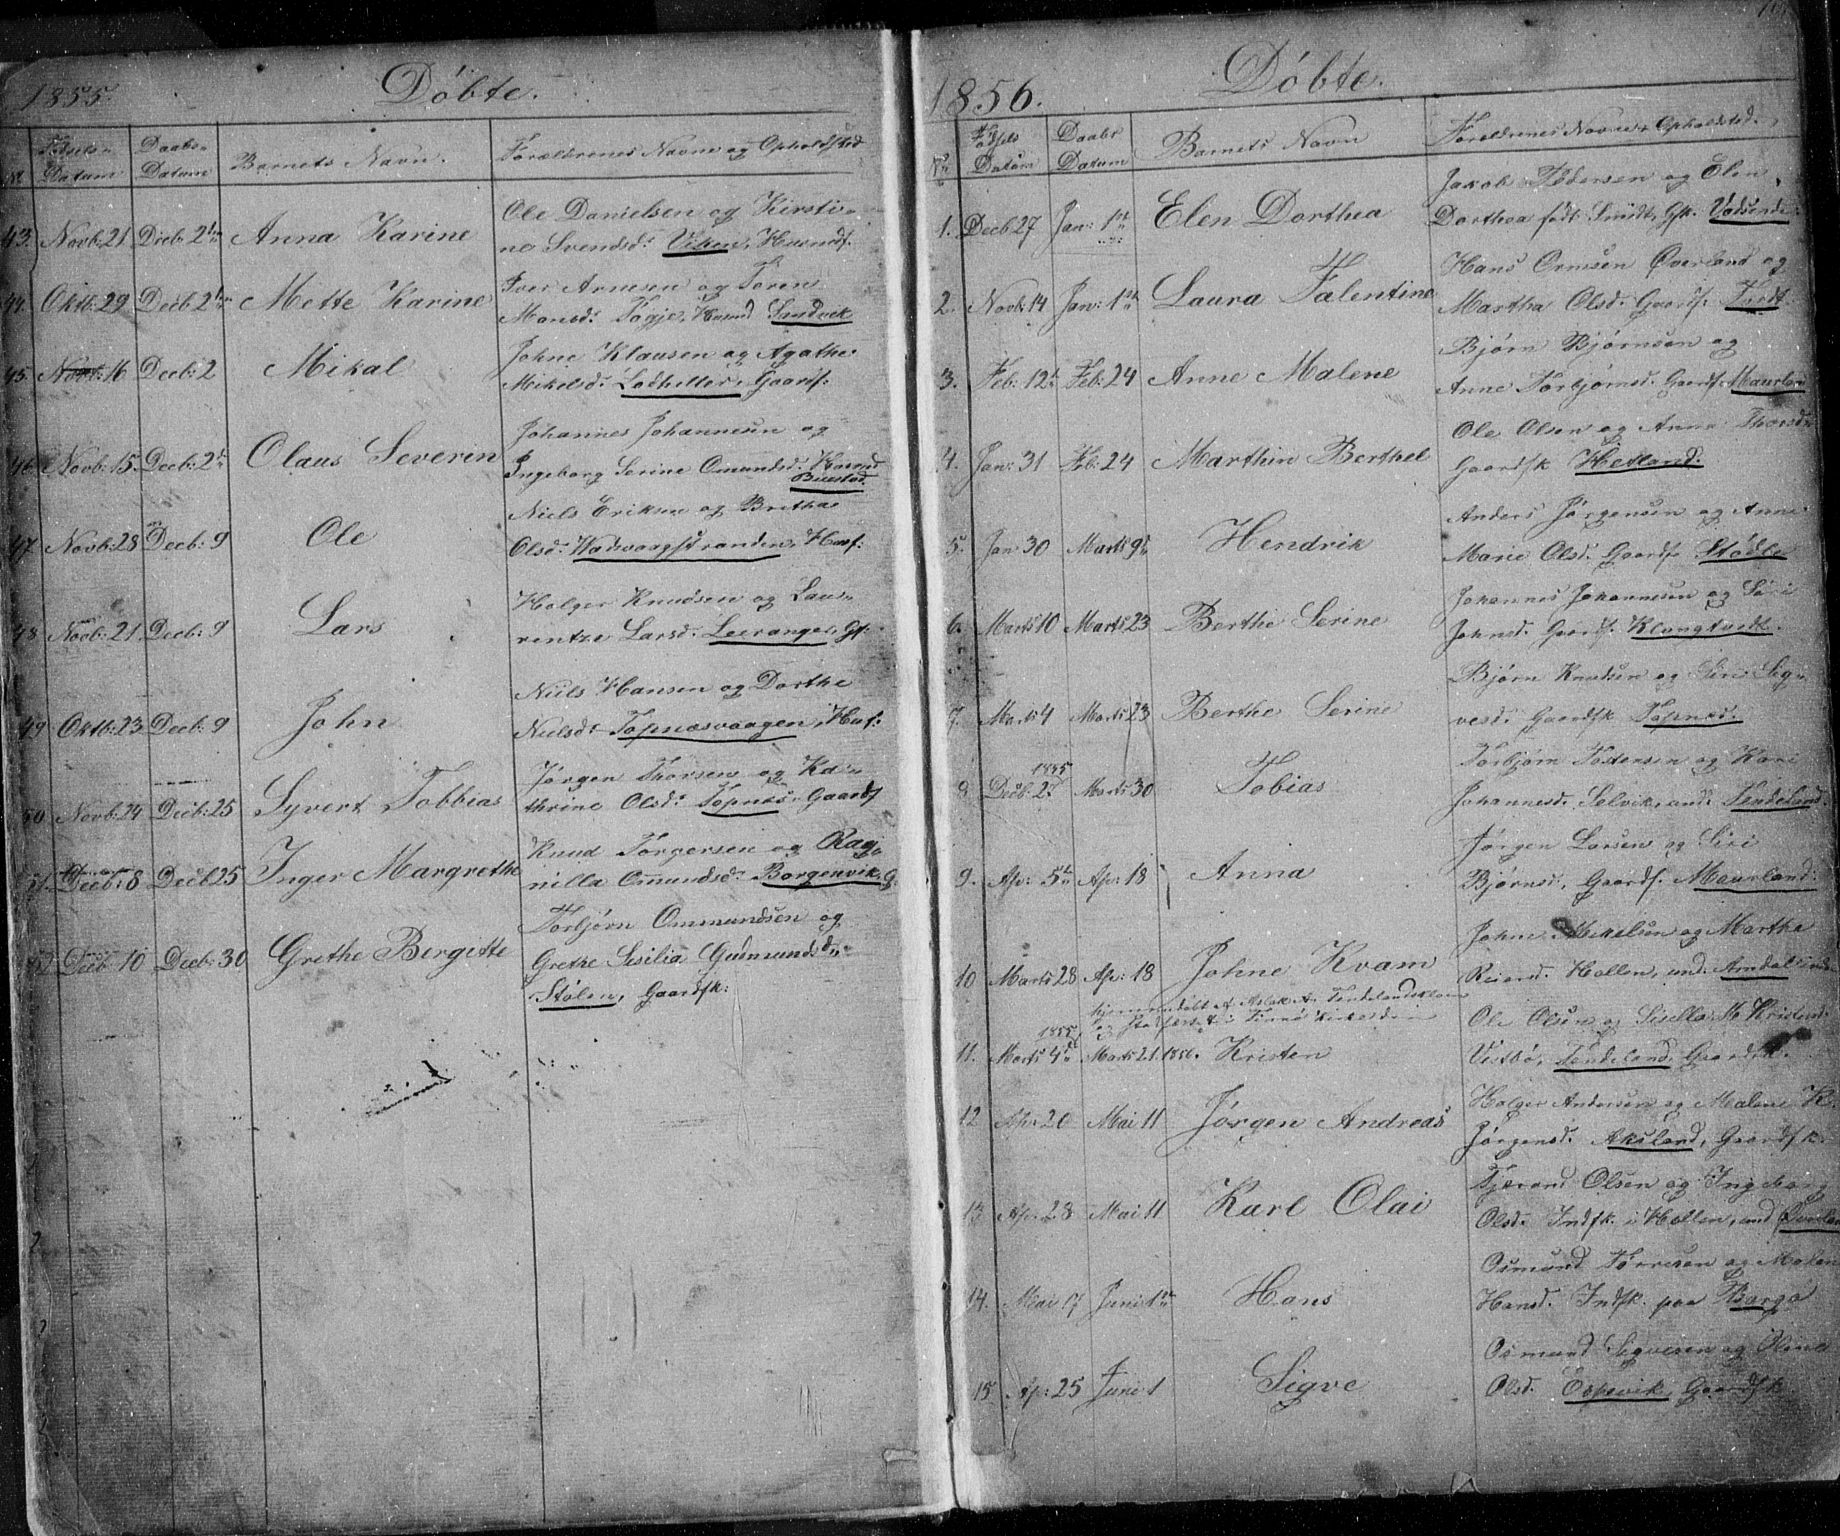 1855.
Döbte.
№ Födsels Datum Daabs Datum Barnets Navn. Forældrenes Navne og Opholdssted
43. Novb: 21 Decb: 2den Anna Karine
Ole Danielsen og Kirsti-
ne Svendsd: Viken, Husmdf.
44. Oktb: 29 Decb: 2den Mette Karine
Iver Arnesen og Toren
Monsd: Fogje, Husmd Sandvik
45. Novb: 16 Decb: 2 Mikal
Johne Klausen og Agathe
Mikelsd. Ladhellor, Gaardf.
46. Novb: 15 Decb: 2den Olaus Severin
Johannes Johannesen og
Ingeborg Serine Omundsd. Husmd
Buestad.
47 Novb: 28 Decb: 9 Ole
Niels Eriksen og Bretha
Olsd: Wadvaagstranden, Husf.
48 Novb: 21 Decb: 9 Lars
Holger Knudsen og Lau-
rentze Larsd: Leeranger, Gf.
49 Oktb: 23 Decb: 9 John
Niels Hansen og Dorthe
Nielsd: Topnæsvaagen, Husf:
50 Novb: 24 Decb: 25 Syvert Tobbias
Jørgen Thorsen og Ka-
thrine Olsd: Topnæs, Gaardf
51. Decb: 8 Decb 25 Inger Margrethe
Knud Torgersen og Rag-
nilla Omundsd: Borgenvik, G.
52 Decb 10 Decb: 30 Grethe Bergitte
Torbjørn Ommundsen og
Grethe Sisilia Gudmundsd:
Stølen, Gaardfk:
1856.
Döbte.
№ Födsels Datum Daabs Datum Barnets Navn Forældrenes Navne & Opholdsted.
1. Decb 27 Jan: 1ste Elen Dorthea
Jakob Pedersen og Elen
Dorthea født Smidt, Gfk. Vadsunde
2. Novb: 14 Jan: 1ste Laura Falentine
Hans Ormsen Øverland og
Martha Olsd. Gaardf.
3. Feb: 12te Feb: 24 Anne Malene
Bjørn Bjørnsen og
Anne Torbjørnsd. Gaardf. Maurland
4. Jan: 31 Feb: 24 Marthin Berthel
Ole Olsen og Anna Thorsd
Gaardfk Hetland.
5. Jan 30 Marts 9de Hendrik
Anders Jørgensen og Anne
Marie Olsd. Gaardf. Stødle
6. Marts 10 Marts 23 Berthe Serine
Johannes Johannesen og Siri
Johnsd. Gaardf. Klungtvedt.
7. Marts 4 Marts 23 Berthe Serine
Bjørn Knudsen og Siri Sig-
vesd. Gaardfk Topnæs.
1855
8 Decb. 2den Marts 30 Tobias
Torbjørn Tostensen og Kari
Johannesd. Selvik, und. Tendeland.
9. Ap: 5te Ap: 18 Anna
Jørgen Larsen og Siri
Bjørnsd., Gaardf. Maurland.
10 Marts 28 Ap: 18 Johne Kvam
Johne Mikelsen og Marthe
Hollen, und.
hjemmedøbt af Aslak A. Tendeland
og Stadfæstet i Kirke
1855
11. Marts 4de Marts 21. 1856. Kristen
Ole Olsen og Sisella M. Kristensd
Vestbø, Tendeland, Gaardfk.
12 Ap: 20 Mai 11 Jørgen Andreas
Holger Andersen og Malene K.
Jørgensd. Aksland, Gaardfk.
13 Ap: 28 Mai 11 Karl Olai
Tjerand Olsen og Ingeborg
Olsd. Indfk. i Hollen, und Øverland
14. Mai 17 Juni 1ste Hans
Osmund Tørresen og Malene
Hansd. Indfk. paa Borgø
15 Ap: 25 Juni 1 Sigve
Osmund Sigvesen og Oline
Olsd. Espevik, Gaardfk